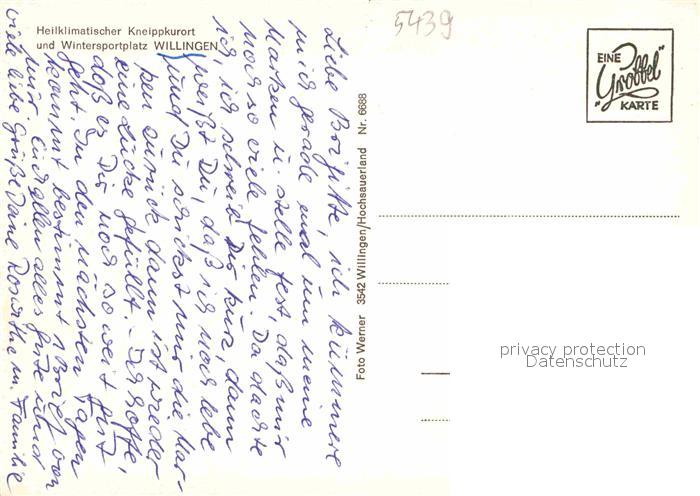 Heilklimatischer Kneippkurort
und Wintersportplatz WILLINGEN
5439
EINE
Grobbel
KARTE
Liebe Brigitte, ich kümmere
mich gerade mal um meine
Marken u. stelle fest, daß mir
noch so viele fehlen. Da dachte
ich, ich schreib Dir kurz, dann
weißt Du, daß ich noch lebe
und Du schickst mir die Mar-
ken zurück dann ist wieder
eine Lücke gefüllt. Ich hoffe,
daß es Dir noch so weit gut
geht. In den nächsten Tagen
kommt bestimmt 1 Brief von
mir. Euch allen alles Gute und
viele liebe Grüße Deine Roswitha m. Familie
Foto Werner 3542 Willingen/Hochsauerland Nr. 6688
privacy protection
Datenschutz